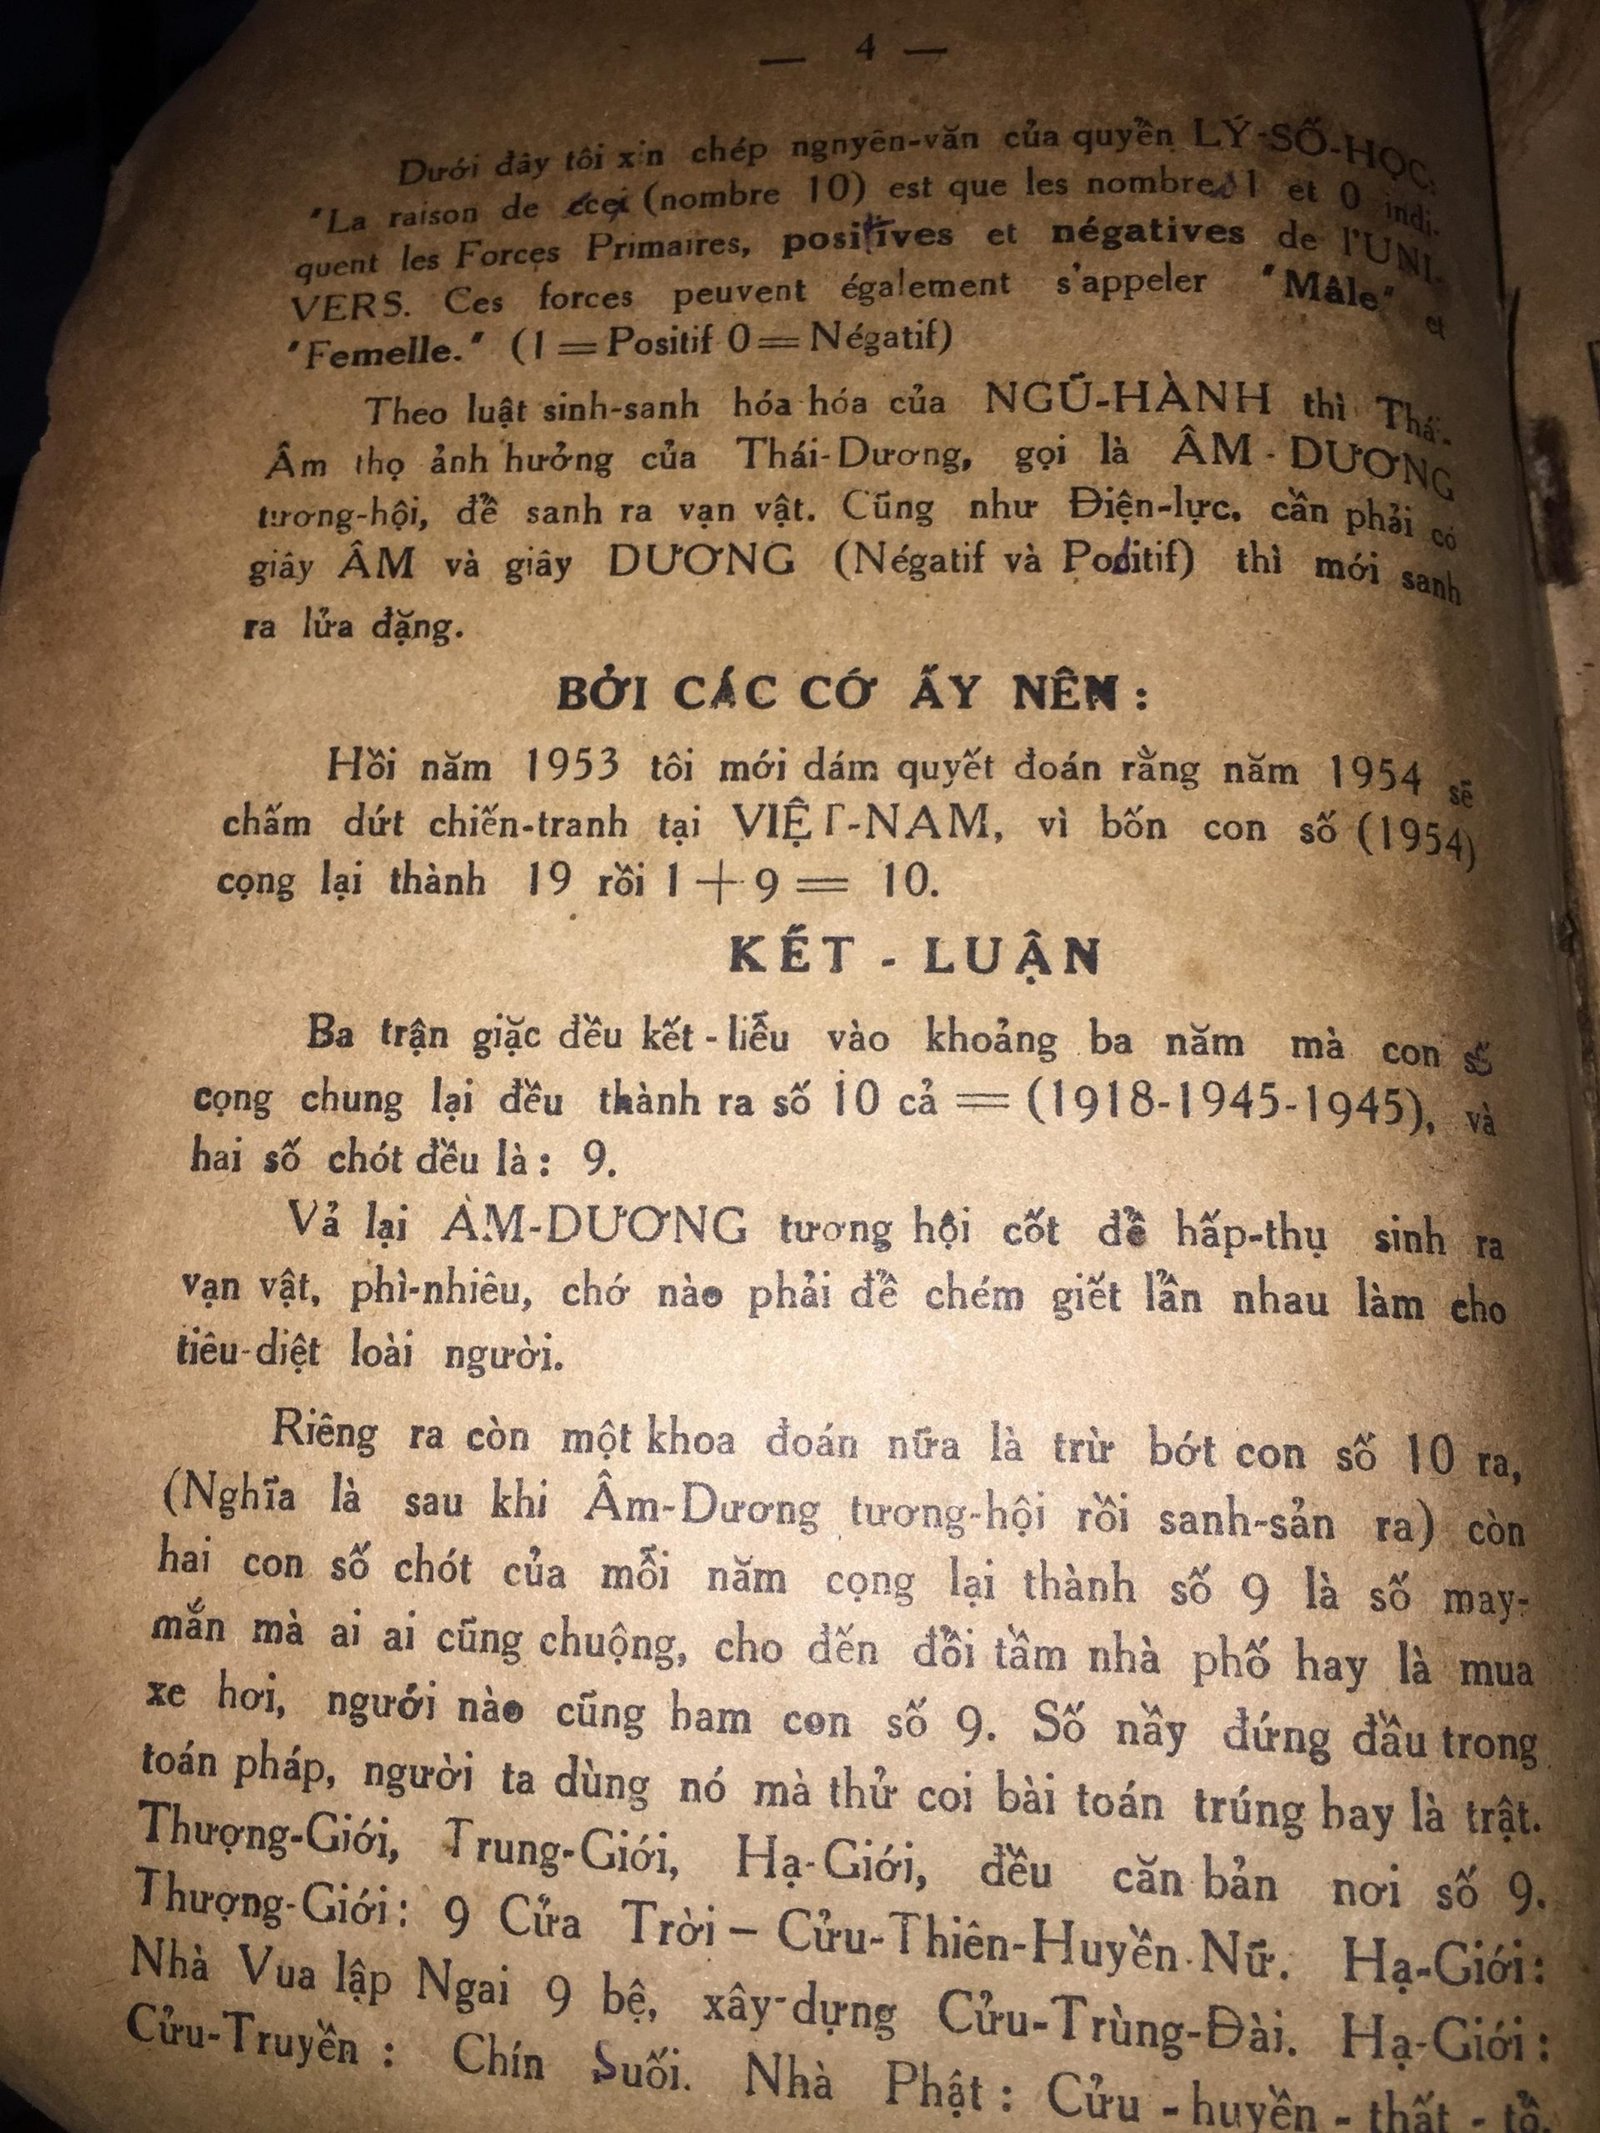 — 4 —
Dưới đây tôi xin chép ngnyên-văn của quyền LÝ-SỐ-HỌC:
"La raison de ceci (nombre 10) est que les nombres 1 et 0 indi-
quent les Forces Primaires, positives et négatives de l'UNI-
VERS. Ces forces peuvent également s'appeler "Mâle" et
"Femelle." (1 = Positif 0 = Négatif)
Theo luật sinh-sanh hóa hóa của NGŨ-HÀNH thì Thái-
Âm thọ ảnh hưởng của Thái-Dương, gọi là ÂM - DƯƠNG
tương-hội, để sanh ra vạn vật. Cũng như Điện-lực, cần phải có
giây ÂM và giây DƯƠNG (Négatif và Positif) thì mới sanh
ra lửa đặng.
BỞI CÁC CỚ ẤY NÊN :
Hồi năm 1953 tôi mới dám quyết đoán rằng năm 1954 sẽ
chấm dứt chiến-tranh tại VIỆT-NAM, vì bốn con số (1954)
cọng lại thành 19 rồi 1 + 9 = 10.
KẾT - LUẬN
Ba trận giặc đều kết - liễu vào khoảng ba năm mà con số
cọng chung lại đều thành ra số 10 cả = (1918-1945-1945), và
hai số chót đều là : 9.
Vả lại ÂM-DƯƠNG tương hội cốt để hấp-thụ sinh ra
vạn vật, phì-nhiêu, chớ nào phải để chém giết lẫn nhau làm cho
tiêu-diệt loài người.
Riêng ra còn một khoa đoán nữa là trừ bớt con số 10 ra,
(Nghĩa là sau khi Âm-Dương tương-hội rồi sanh-sản ra) còn
hai con số chót của mỗi năm cọng lại thành số 9 là số may-
mắn mà ai ai cũng chuộng, cho đến đỗi tầm nhà phố hay là mua
xe hơi, người nào cũng ham con số 9. Số nầy đứng đầu trong
toán pháp, người ta dùng nó mà thử coi bài toán trúng hay là trật.
Thượng-Giới, Trung-Giới, Hạ-Giới, đều căn bản nơi số 9.
Thượng-Giới : 9 Cửa Trời – Cửu-Thiên-Huyền Nữ. Hạ-Giới :
Nhà Vua lập Ngai 9 bệ, xây-dựng Cửu-Trùng-Đài. Hạ-Giới :
Cửu-Truyền : Chín Suối. Nhà Phật : Cửu - huyền - thất - tổ.